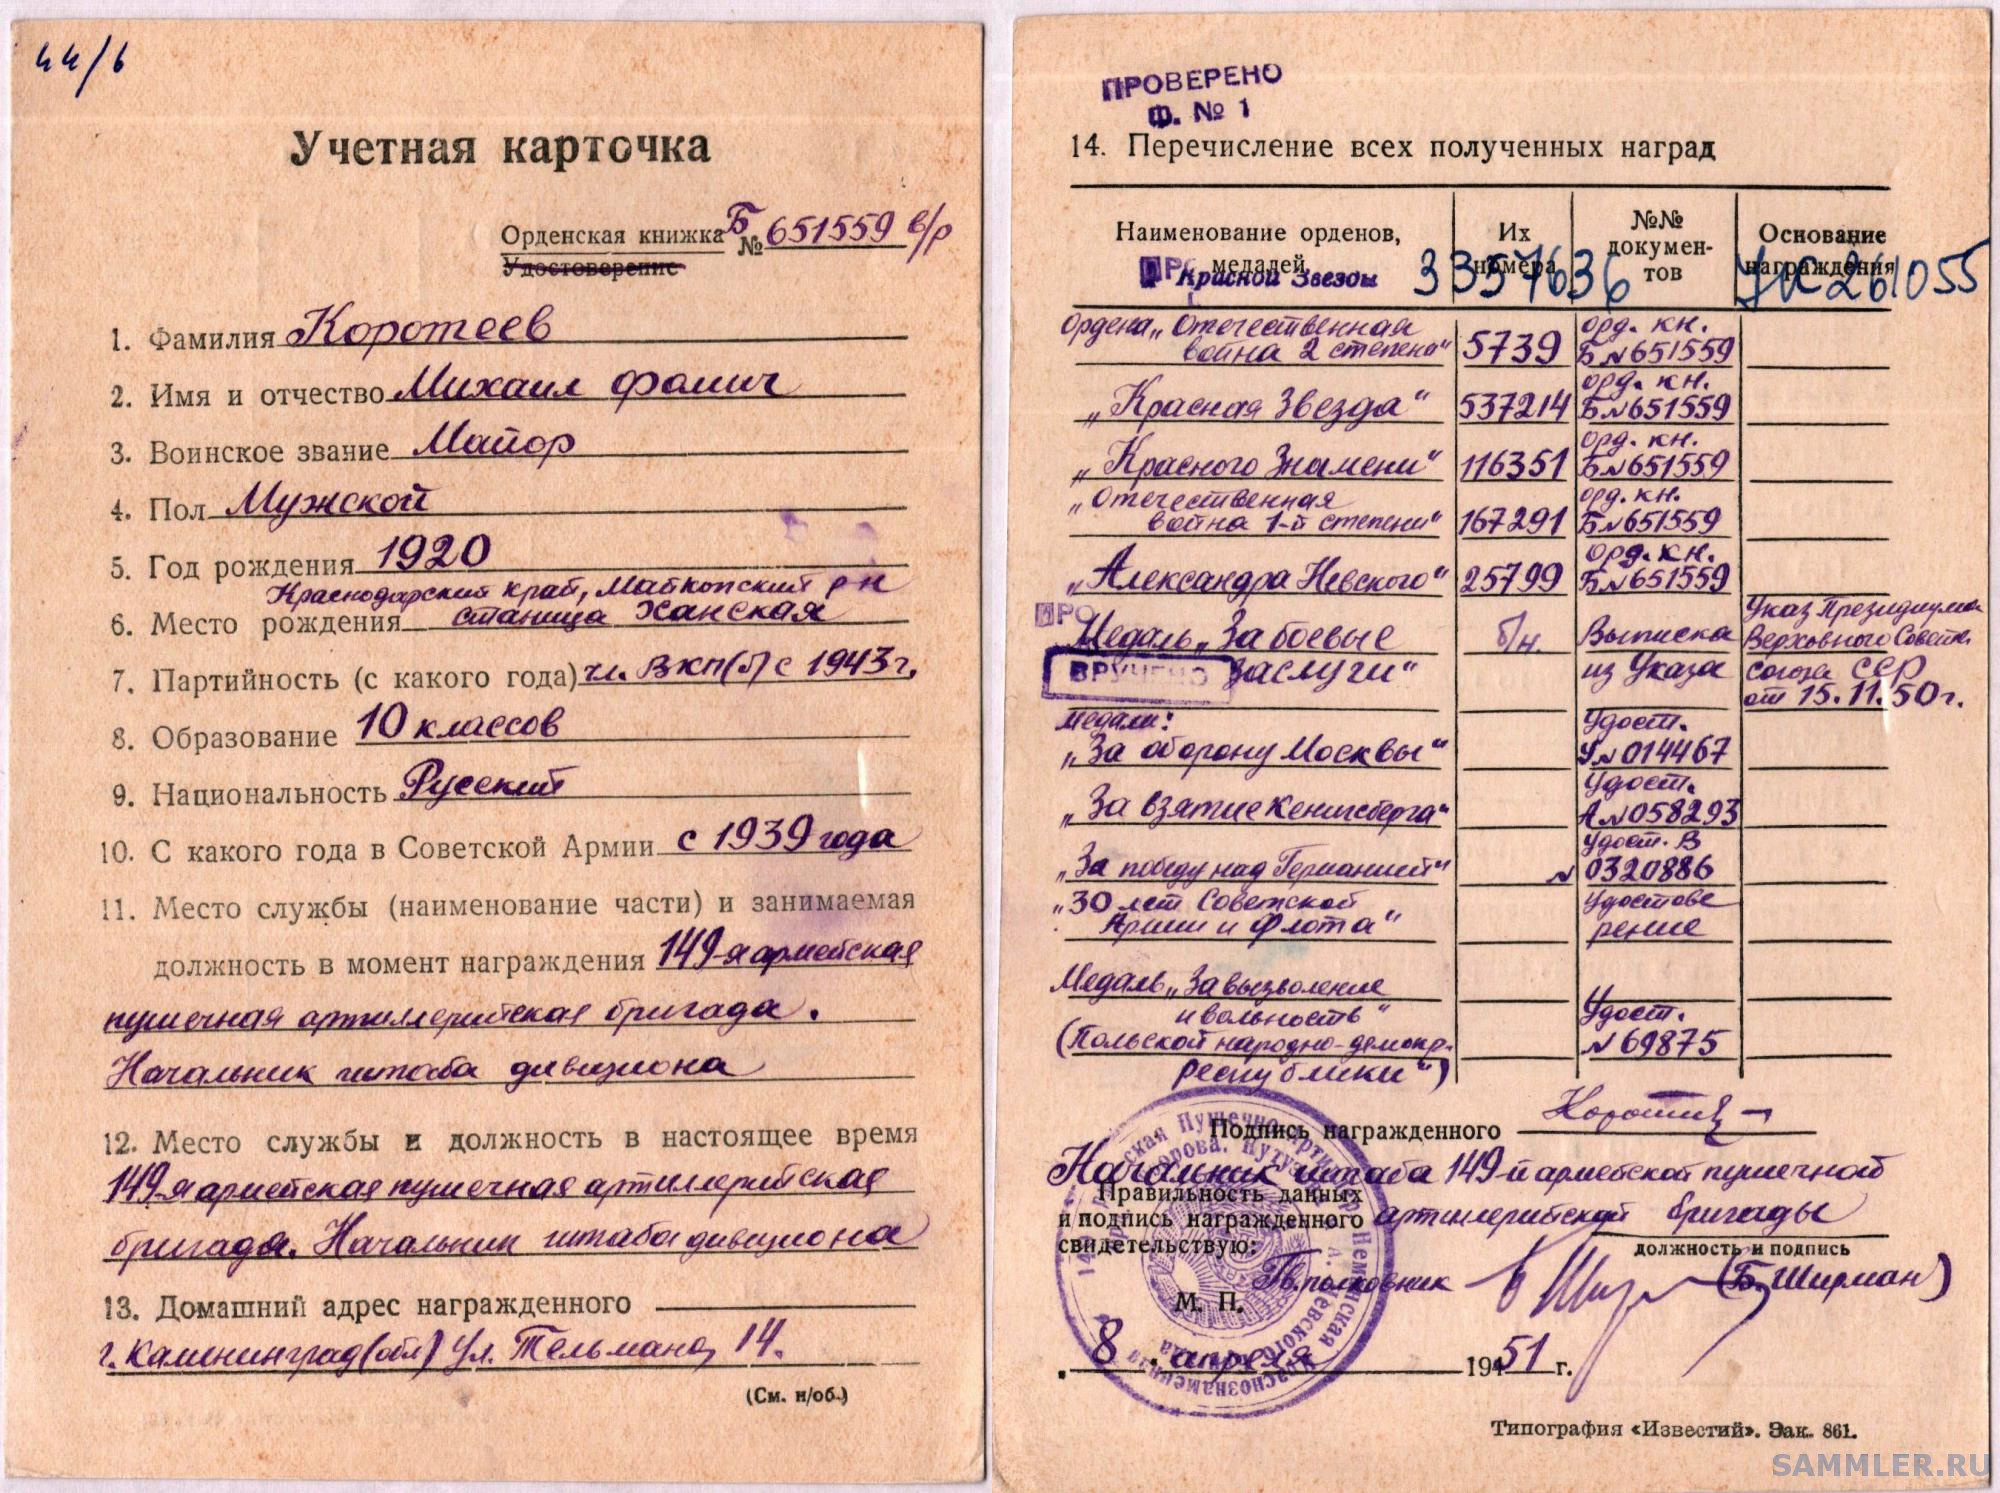 44/6
Учетная карточка
Орденская книжка Б № 651559 в/р
Удостоверение
1. Фамилия Коротеев
2. Имя и отчество Михаил Фомич
3. Воинское звание Майор
4. Пол Мужской
5. Год рождения 1920
Краснодарский край, Майкопский р-н
6. Место рождения станица Ханская
7. Партийность (с какого года) чл. ВКП(б) с 1943 г.
8. Образование 10 классов
9. Национальность Русский
10. С какого года в Советской Армии с 1939 года
11. Место службы (наименование части) и занимаемая
должность в момент награждения 149-я армейская
пушечная артиллерийская бригада.
Начальник штаба дивизиона
12. Место службы и должность в настоящее время
149-я армейская пушечная артиллерийская
бригада. Начальник штаба дивизиона
13. Домашний адрес награжденного
г. Калининград (обл) ул. Тельмана, 14.
(См. н/об.)
ПРОВЕРЕНО
Ф. № 1
14. Перечисление всех полученных наград
Наименование орденов, медалей
Их номера
№№ докумен-тов
Основание награждения
Красной Звезды 3357636 УК 261055
Ордена „Отечественная орд. кн.
война 2 степени" 5739 Б № 651559
орд. кн.
„Красная Звезда" 537214 Б № 651559
орд. кн.
„Красного Знамени" 116351 Б № 651559
„Отечественная орд. кн.
война 1-й степени" 167291 Б № 651559
орд. кн.
„Александра Невского" 25799 Б № 651559
Медаль „За боевые б/н. Выписка Указ Президиума Верховного Совета
заслуги" из Указа Союза ССР
от 15.11.50 г.
ВРУЧЕНО
Медали: Удост.
„За оборону Москвы" У № 014467
Удост.
„За взятие Кенигсберга" А № 058293
Удост. В
„За победу над Германией" № 0320886
„30 лет Советской Удостове
Армии и Флота" рение
Медаль „За вызволение
и вольность" Удост.
(Польской народно-демокр. № 69875
республики")
Подпись награжденного Коротеев
Начальник штаба 149-й армейской пушечной
Правильность данных
и подпись награжденного артиллерийской бригады
свидетельствую: должность и подпись
Гв. полковник (Б. Ширман)
М. П.
8 апреля 1951 г.
Типография «Известий». Зак. 861.
SAMMLER.RU